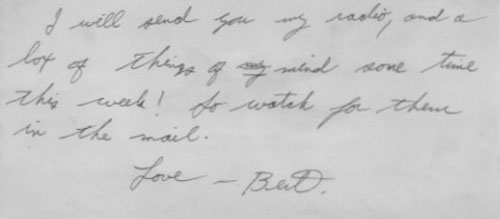 I will send you my radio, and a
box of things of my mind some time
this week! So watch for them
in the mail.
Love - Bert.